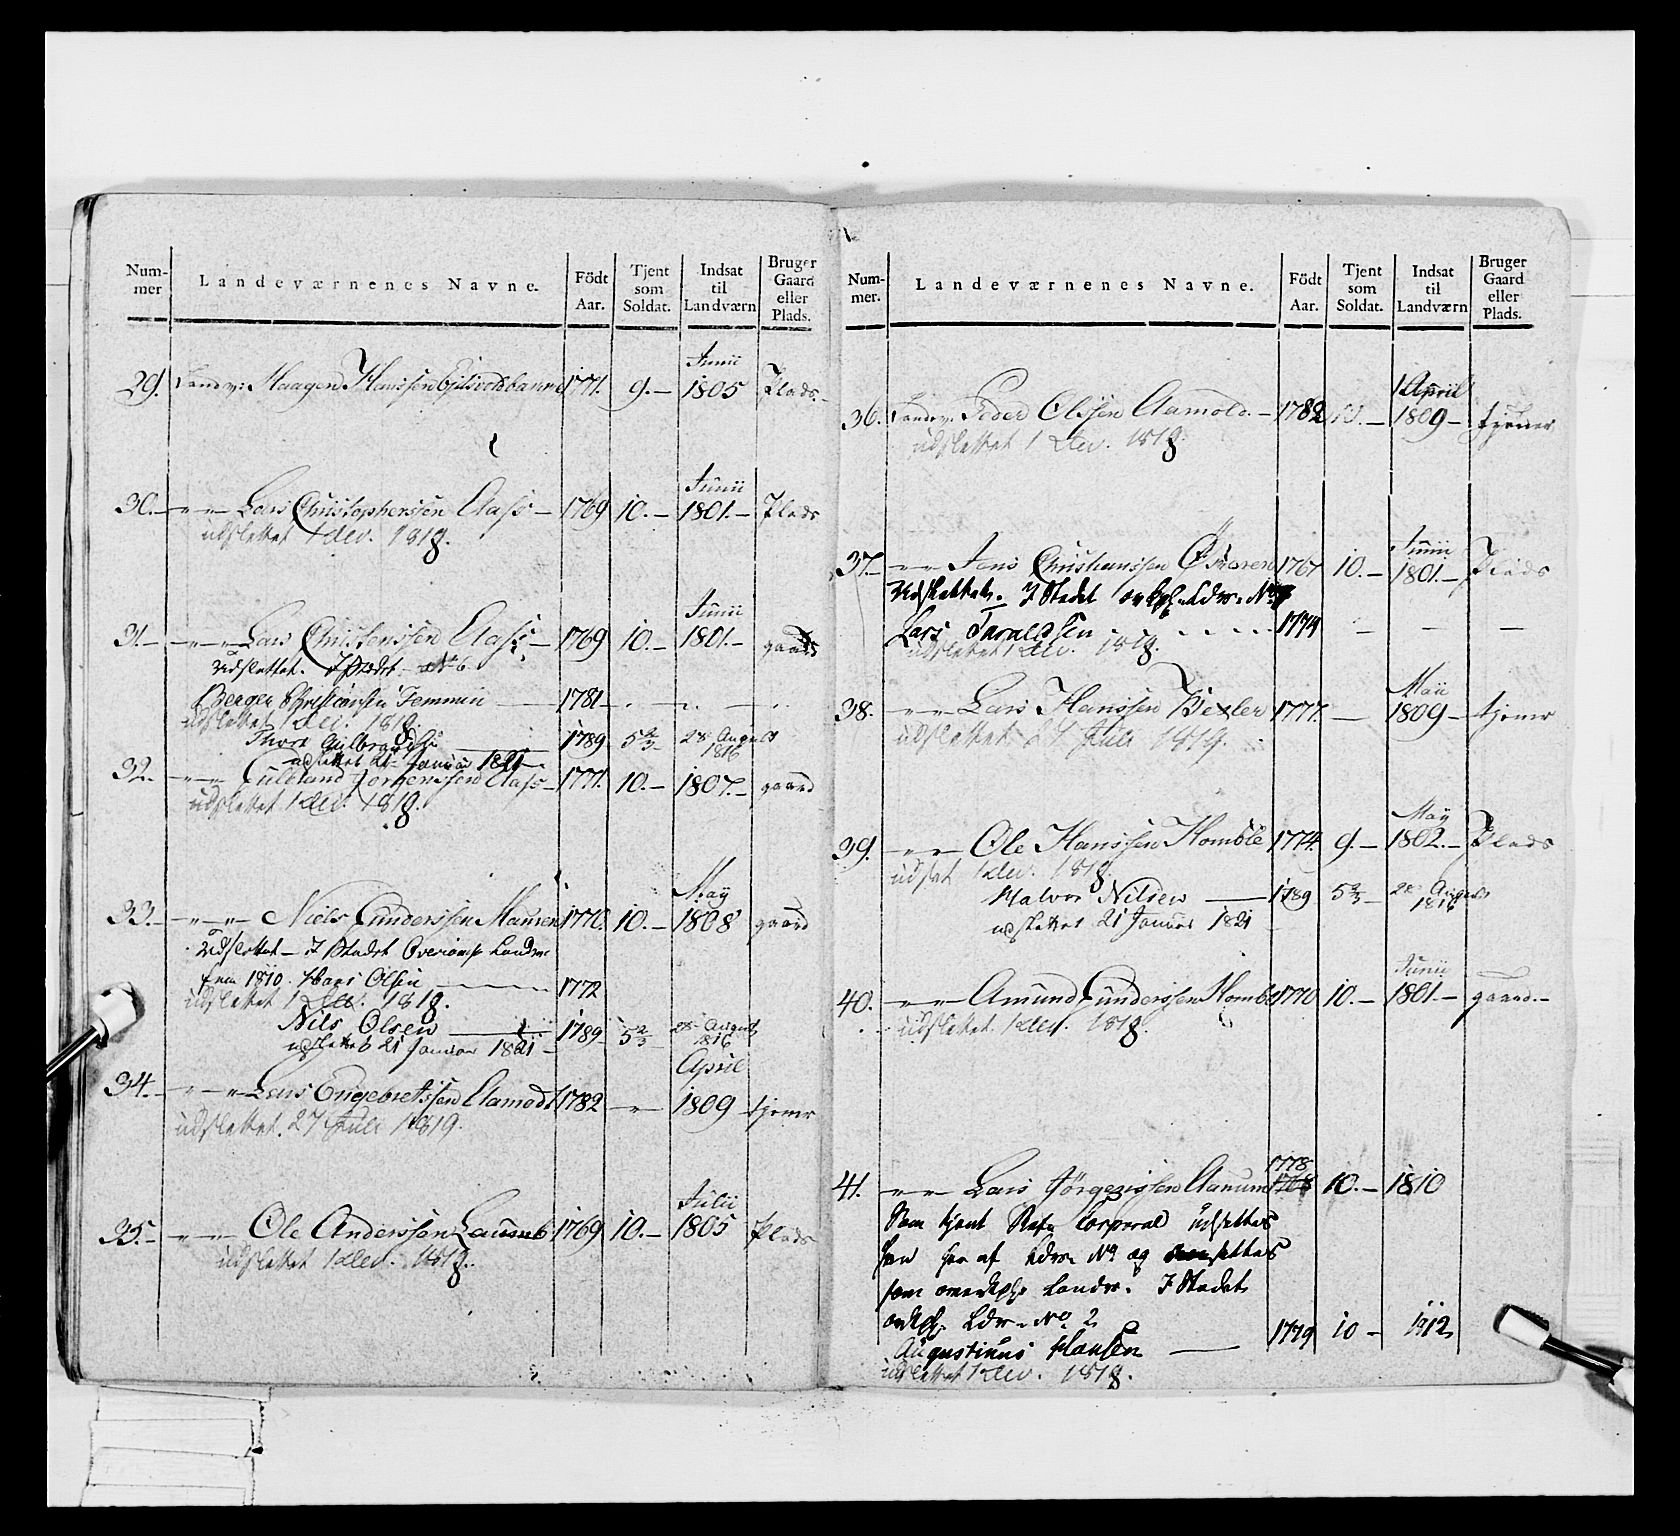 Num-mer Landeværnenes Navne. Födt Aar. Tjent som Soldat. Indsat til Landværn Bruger Gaard eller Plads.
29. Landv: Haagen Hanssen 1771. 9.— Junii 1805 Plads.
30.— „ „ Lars Christophersen Aass — 1769 10.— Junii 1801.— Plads
udslettet 1 Dec. 1818.
31.— „ „ Lars Christenssen Aass — 1769 10.— Junii 1801.— gaard
Udslettet. I Stedet No 6
Berger Christiansen Temmin — 1781
udslettet 1 Dec. 1818.
Thore Gulbrandsen — 1789 5 2/3 28 August 1816
udslettet 21 Januar 1821
32.— „ „ Guldbrand Jorgenssen Aass — 1771. 10.— 1807.— gaard
udslettet 1 Dec. 1818.
33.— „ „ Niels Gunderssen Mauren 1770. 10.— May 1808 gaard
Udslettet — I Stedet Landv.
1810. Hans Olsen 1772
udslettet 1 Dec. 1818.
Nils Olsen — 1789 5 2/3 28 August 1816
udslettet 21 Januar 1821 —
34.— „ „ Lars Engebretssen Aamodt 1782 — April 1809 tjener
udslettet. 27 Juli 1819.
35.— „ „ Ole Anderssen 1769 10.— Julii 1805 Plads
udslettet 1 Dec. 1818.
Num-mer. Landeværnenes Navne. Födt Aar. Tjent som Soldat. Indsat til Landværn Bruger Gaard eller Plads.
36. Landv. Peder Olssen Aamold. — 1782 10.— 1 April 1809 — tjener
udslettet 1 Dec. 1818.
37.— „ „ Jens Christianssen 1767 10.— Junii 1801.— Plads
Udslettet. I Stedet Ldv. No
Lars Taraldsen 1774 — — —
udslettet 1 Dec. 1818.
38. „ „ Lars Hanssen 1777. — May 1809 — tjener
udslettet 27 Juli 1819.
39. „ „ Ole Hanssen Homble 1774. 9.— May 1802.— Plads
udslet 1 Dec. 1818.
Halvor Nilsen — 1789 5 2/3 28 August 1816
udslettet 21 Januar 1821
40. „ „ Amund Gunderssen Homble 1770 10.— Junii 1801.— gaard.—
udslettet. 1 Dec. 1818.
41. „ „ Lars Jørgenssen Aanum 1778 1768 10.— 1810
Som tjent Corporal udsettes
han her af Ldv. No og ansettes
som Landv. I Stedet
Ldv. No 2
Augustinus Hansen — 1779 10 — 1812
udslettet 1 Dec. 1818.